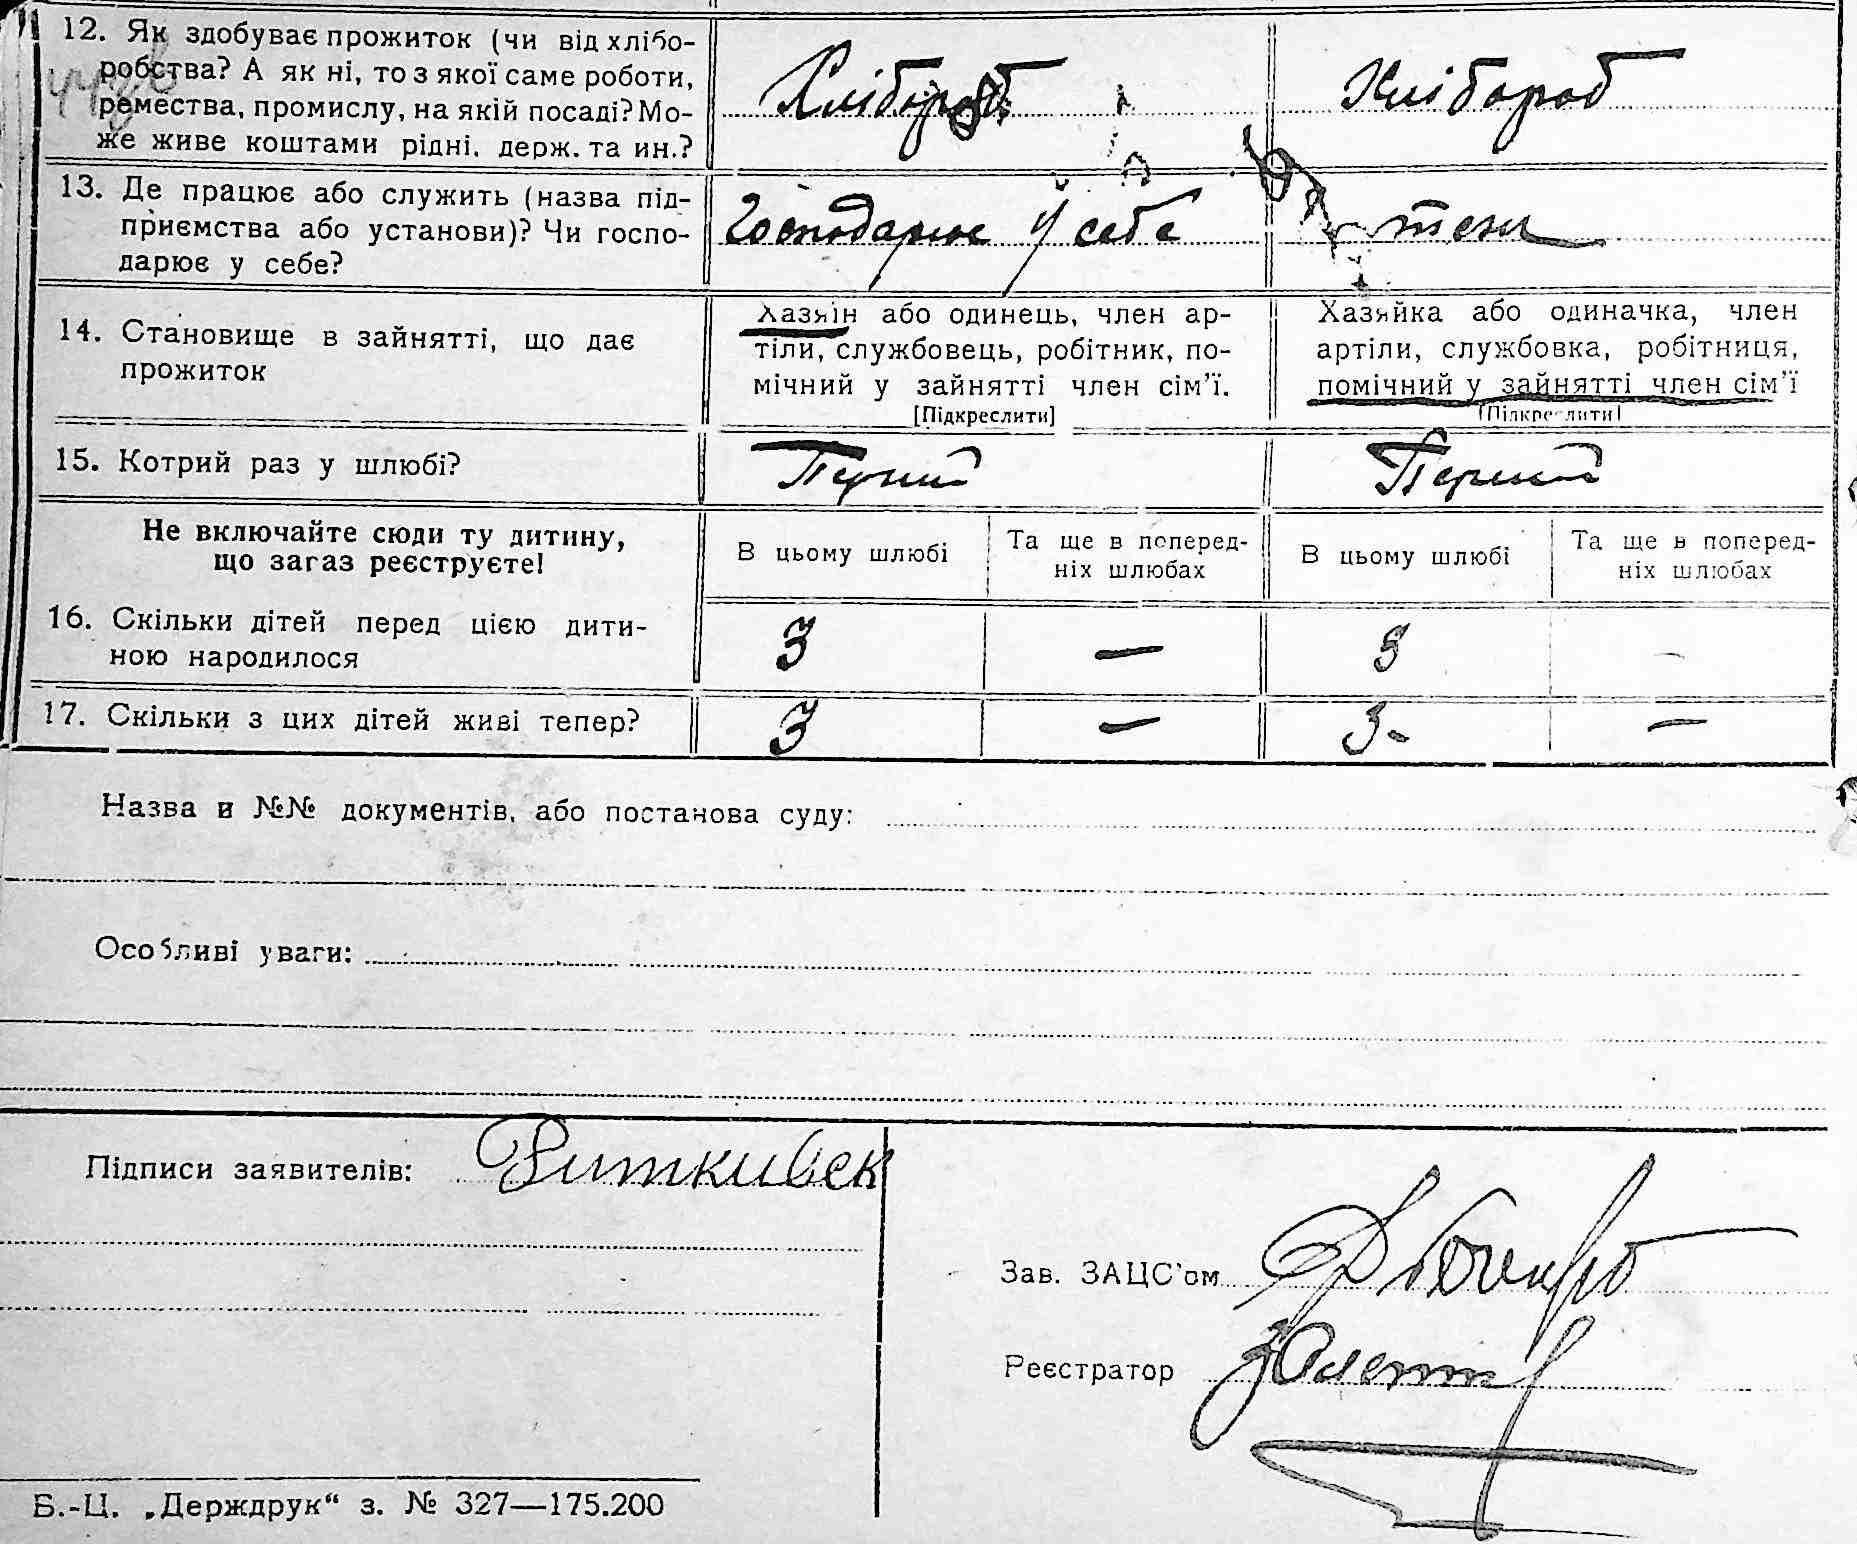 12. Як здобуває прожиток (чи від хлібо-
робства? А як ні, то з якої саме роботи,
ремества, промислу, на якій посаді? Мо-
же живе коштами рідні, держ. та ин.?
Хлібороб
Хлібороб
13. Де працює або служить (назва під-
приємства або установи)? Чи госпо-
дарює у себе?
Господарює у себе
теж
14. Становище в зайнятті, що дає
прожиток
Хазяїн або одинець, член ар-
тіли, службовець, робітник, по-
мічний у зайнятті член сім'ї.
[Підкреслити]
Хазяйка або одиначка, член
артіли, службовка, робітниця,
помічний у зайнятті член сім'ї
[Підкреслити]
15. Котрий раз у шлюбі?
Перший
Перший
Не включайте сюди ту дитину,
що загаз реєструєте!
В цьому шлюбі
Та ще в поперед-
ніх шлюбах
В цьому шлюбі
Та ще в поперед-
ніх шлюбах
16. Скільки дітей перед цією дити-
ною народилося
3 — 3 —
17. Скільки з цих дітей живі тепер?
3 — 3- —
Назва и №№ документів, або постанова суду:
Особливі уваги:
Підписи заявителів:
Зав. ЗАЦС'ом
Реєстратор
Б.-Ц. „Держдрук“ з. № 327—175.200